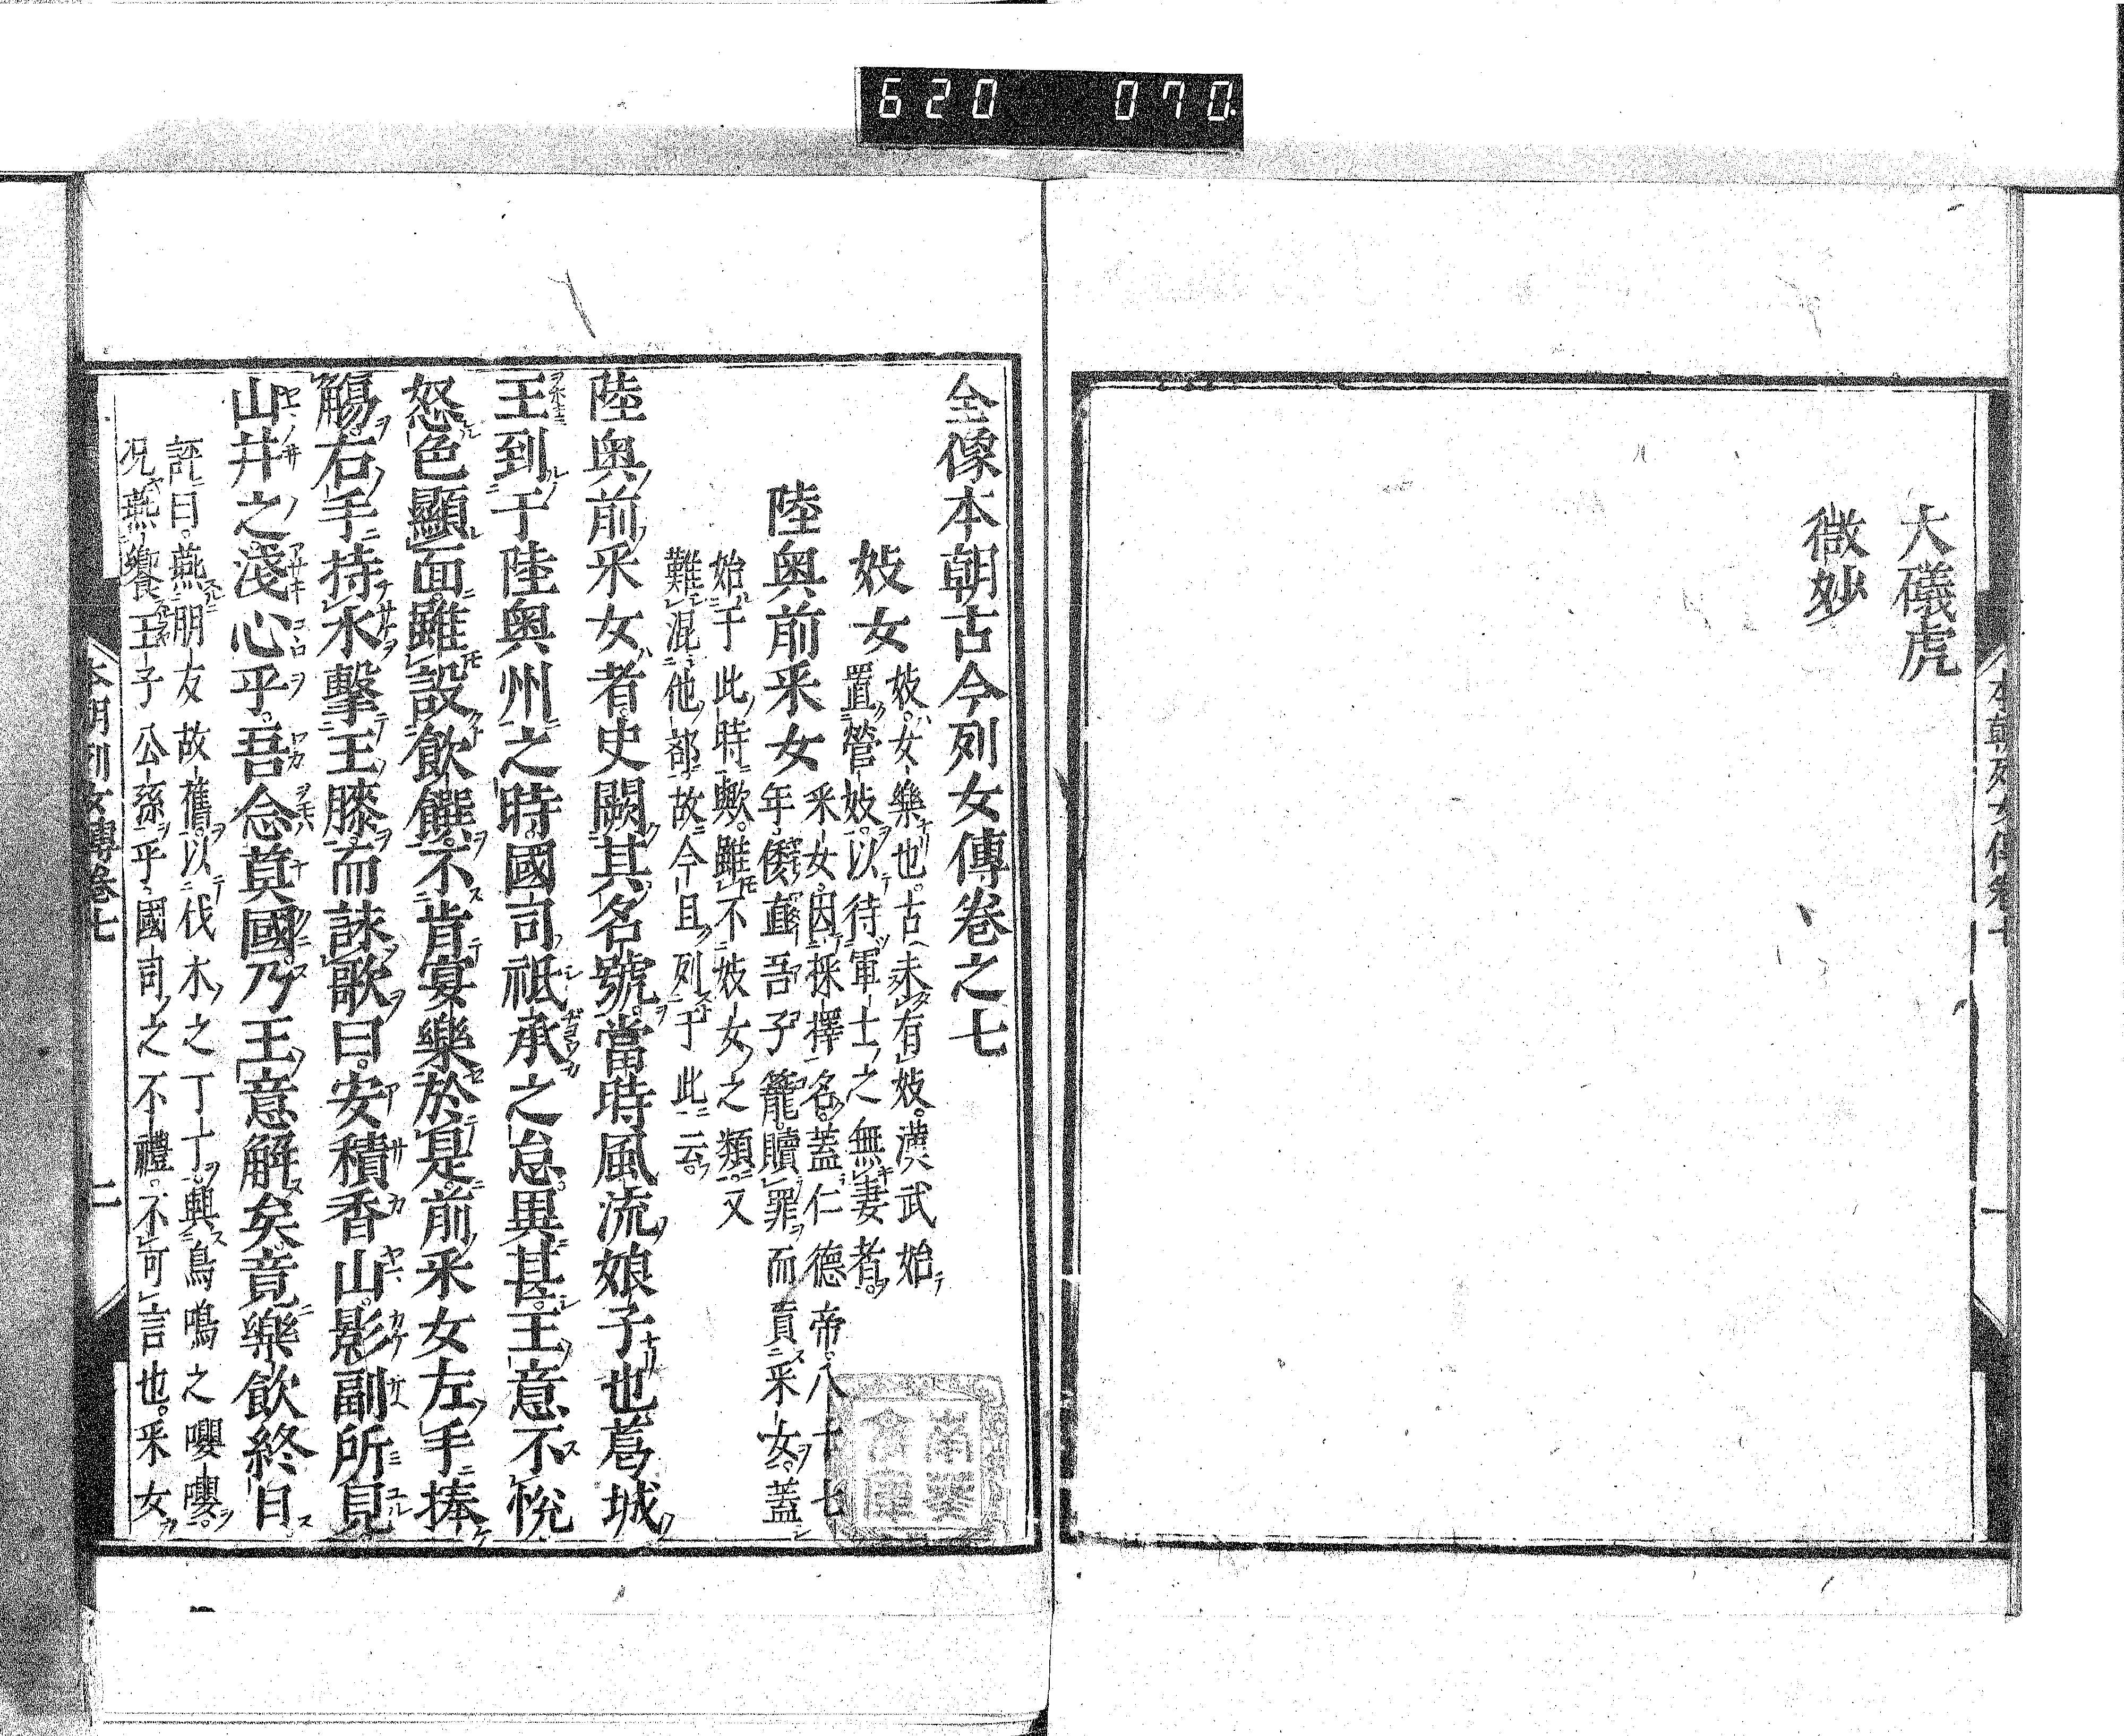 620 070
大礒虎
微妙
本朝列女傳卷七
一
全像本朝古今列女傳卷之七
妓女
妓女樂也古未有妓漢武始
置營妓以待軍士之無妻者
陸奥前采女
采女因採擇名蓋仁德帝八十七
年吾子籠贖罪而貢采女蓋
始于此時歟雖不妓女之類又
難混他部故今且列于此云
陸奥前采女者史闕其名號當時風流娘子也葛城
王到于陸奥州之時國司祗承之怠異甚王意不悅
怒色顯面雖設飲饌不肯宴樂於是前采女左手捧
觴右手持水擊王膝而詠歌曰安積香山影副所見
山井之淺心乎吾念莫國乃王意解矣竟樂飲終日
評曰燕朋友故舊以伐木之丁丁興鳥鳴之嚶嚶
况燕饗王子公孫乎國司之不禮不可言也采女
本朝列女傳卷七
二